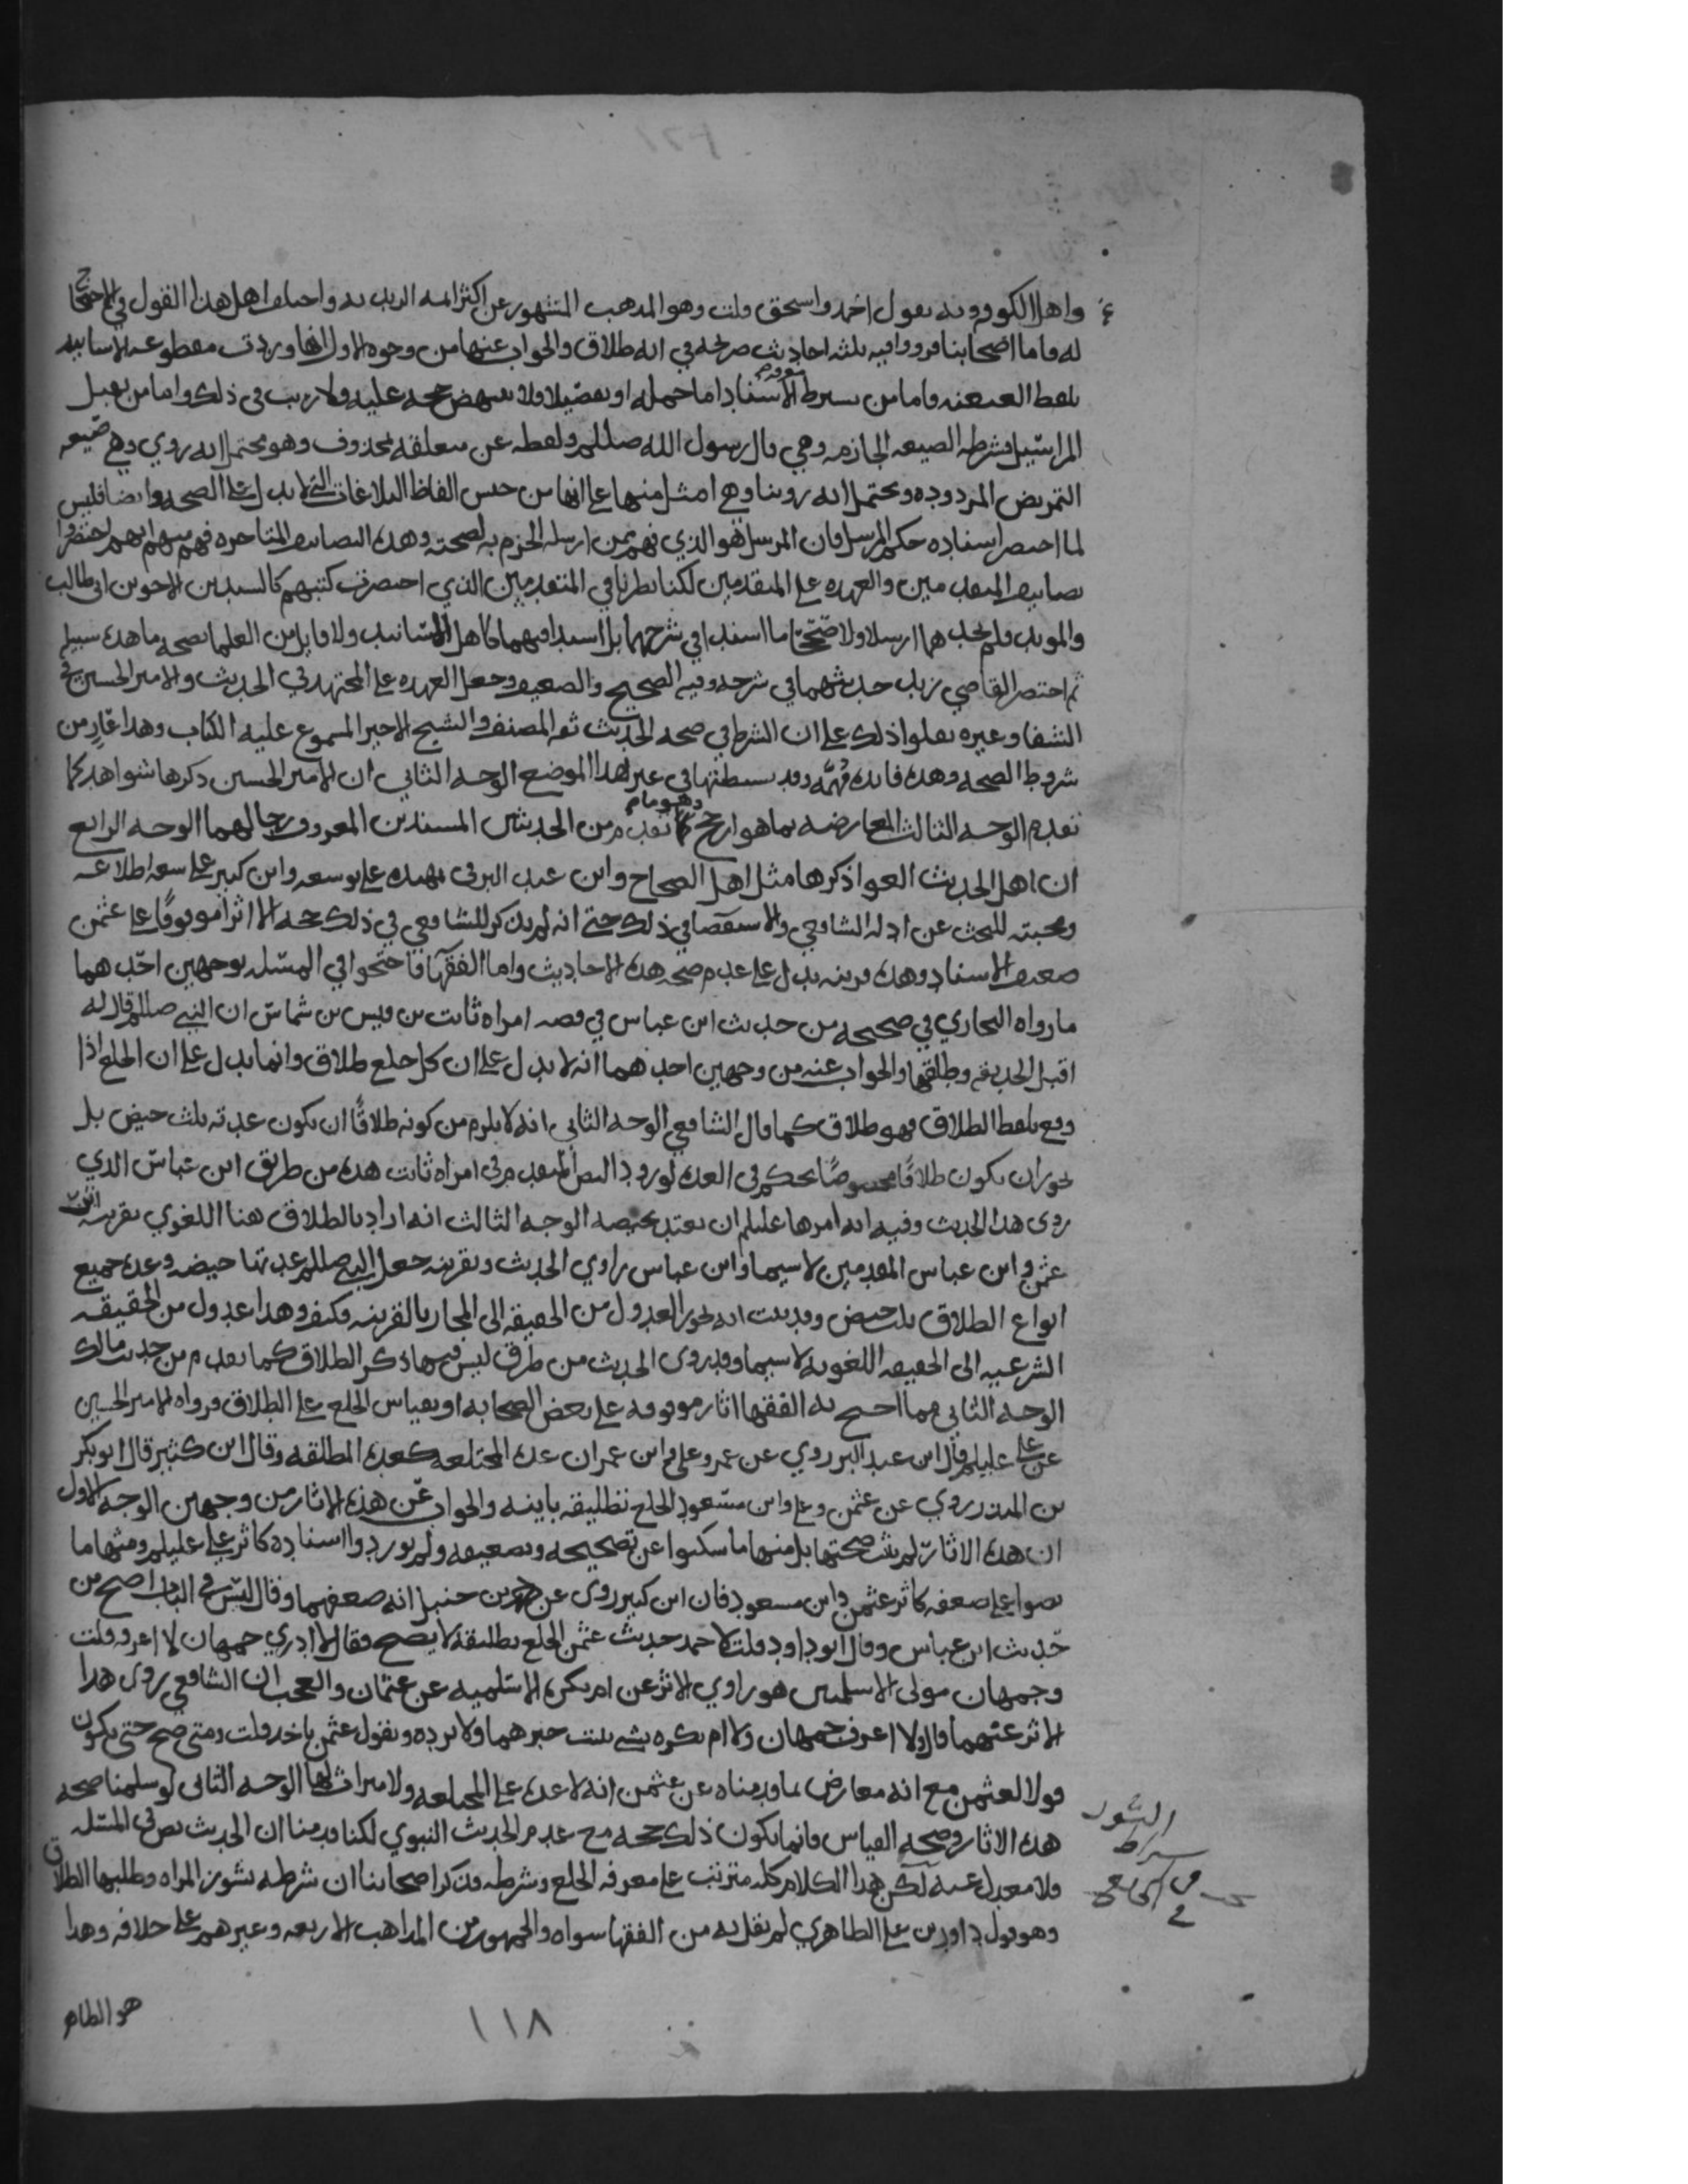 واهل الكوفه وبه يقول احمد واسحق قلت وهو المذهب المشهور عن اكثر ائمه الزيديه واحتج اهل هذا القول في الاحتجا
له فاما اصحابنا فرووا فيه ثلثه احاديث صريحه في انه طلاق والجواب عنها من وجوه الاول انها وردت مقطوعه الاسانيد
بلفظ العنعنه فاما من يشرط الاسناد اما جمله او تفصيلا فلا تنتهض حجه عليه ولا ريب في ذلك واما من يقبل
المراسيل فشرطه الصيغه الجازمه وهي قال رسول الله صللم ولفظه عن متعلقه بمحذوف وهو يحتمل انه روي وهي صيغه
التمريض المردوده ويحتمل انه روينا وهي امثل منها على انها من جنس الفاظ البلاغات التي لا يدل على الصحه وايضا فليس
لما اختصر اسناده حكم المرسل فان المرسل هو الذي فهم ممن ارسله الجزم بصحته وهذه التصانيف المتاخره فهم منهم انهم اختصروا
تصانيف المتقدمين والعهده على المتقدمين لكنا نظرنا في المتقدمين الذي اختصرت كتبهم كالسيدين الاخوين ابي طالب
والمويد فلم نجدهما ارسلا ولا صححا ما اسندا في شرحهما بل اسندا فيهما كاهل المسانيد ولا قايل من العلما بصحه ما هذه سبيله
ثم اختصر القاضي زيد حديثهما في شرحه وفيه الصحيح والضعيف وجعل العهده على المجتهد في الحديث والامير الحسين في
الشفا وغيره نقلوا ذلك على ان الشرط في صحه الحديث ثقه المصنف والشيخ الاخير المسموع عليه الكتاب وهذا عارٍ من
شروط الصحه وهذه فايده مُهِمَّه وقد بسطتها في غير هذا الموضع الوجه الثاني ان الامير الحسين ذكرها شواهد كما
تقدم الوجه الثالث المعارضه بما هو ارجح وهو ما تقدم من الحديثين المسندين المعروف رجالهما الوجه الرابع
ان اهل الحديث الغوا ذكرها مثل اهل الصحاح وابن عبد البر في تمهيده على توسعه وابن كثير على سعه اطلاعه
ومحبته للبحث عن ادله الشافعي والاستقصا في ذلك حتى انه لم يذكر للشافعي في ذلك حجه الا اثرا موقوفًا على عثمن
ضعيف الاسناد وهذه قرينه يدل على عدم صحه هذه الاحاديث واما الفقها فاحتجوا في المسله بوجهين احدهما
ما رواه البخاري في صحيحه من حديث ابن عباس في قصه امراه ثابت بن قيس بن شماس ان النبي صللم قال له
اقبل الحديقه وطلقها والجواب عنه من وجهين احدهما انه لا يدل على ان كل خلع طلاق وانما يدل على ان الخلع اذا
وقع بلفظ الطلاق فهو طلاق كما قال الشافعي الوجه الثاني انه لا يلزم من كونه طلاقًا ان يكون عدته ثلث حيض بل
يجوز ان يكون طلاقًا مخصوصًا بحكم في العده لورود النص المتقدم في امراه ثابت هذه من طريق ابن عباس الذي
روى هذا الحديث وفيه انه امرها عليلم ان تعتد بحيضه الوجه الثالث انه اراد بالطلاق هنا اللغوي بقرينه اثر
عثمن وابن عباس المقدمين لا سيما وابن عباس راوي الحديث وبقرينه جعل النبي صللم عدتها حيضه وعده جميع
انواع الطلاق ثلث حيض وقد ثبت انه يجوز العدول من الحقيقه الى المجاز بالقرينه فكيف وهذا عدول من الحقيقه
الشرعيه الى الحقيقه اللغويه لا سيما وقد روى الحديث من طرق ليس فيها ذكر الطلاق كما تقدم من حديث مالك
الوجه الثاني مما احتج به الفقها اثار موقوفه على بعض الصحابه او بقياس الخلع على الطلاق فرواه الامير الحسين
عن علي عليلم وقال ابن عبد البر روي عن عمر وعلي وابن عمر ان عده المختلعه كعده المطلقه وقال ابن كثير قال ابو بكر
بن المنذر روي عن عثمن وعلي وابن مسعود الخلع تطليقه باينه والجواب عن هذه الاثار من وجهين الوجه الاول
ان هذه الاثار لم يثبت صحتها بل منها ما سكتوا عن تصحيحه وتضعيفه ولم يوردوا اسناده كاثر علي عليلم ومنها ما
نصوا على ضعفه كاثر عثمن وابن مسعود فان ابن كثير روى عن احمد بن حنبل انه ضعفهما وقال ليس في الباب اصح من
حديث ابن عباس وقال ابو داود قلت لاحمد حديث عثمن الخلع تطليقه لا يصح فقال لا ادري جمهان لا اعرفه قلت
وجمهان مولى الاسلميين هو راوي الاثر عن ام بكره الاسلميه عن عثمان والعجب ان الشافعي روى هذا
الاثر عنهما قال ولا اعرف جمهان ولا ام بكره بشي يثبت خبرهما ولا يرده وبقول عثمن ناخذ قلت ومتى صح حتى يكون
قولا لعثمن مع انه معارض بما قدمناه عن عثمن انه لا عده على المختلعه ولا ميراث لها الوجه الثاني لو سلمنا صحه
هذه الاثار وصحه القياس فانما يكون ذلك حجه مع عدم الحديث النبوي لكنا قدمنا ان الحديث نص في المسله
فلا معدل عنه لكن هذا الكلام كله مترتب على معرفه الخلع وشرطه فذكر اصحابنا ان شرطه نشوز المراه وطلبها الطلاق
وهو قول داود بن علي الظاهري لم يقل به من الفقها سواه والجمهور من المذاهب الاربعه وغيرهم على خلافه وهذا
هو الظاهر
١١٨